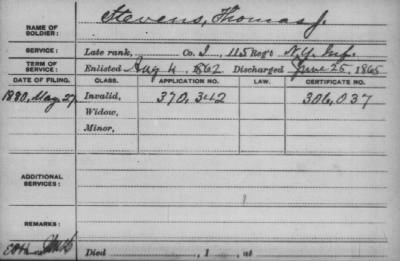 NAME OF SOLDIER: Stevens, Thomas J.
SERVICE: Late rank, Co. I, 115 Reg't N.Y. Inf.
TERM OF SERVICE: Enlisted Aug 4, 1862 Discharged June 25, 1865
DATE OF FILING. CLASS. APPLICATION NO. LAW. CERTIFICATE NO.
1880, May 27 Invalid, 370,342 306,037
Widow,
Minor,
ADDITIONAL SERVICES:
REMARKS:
Died , 1 , at